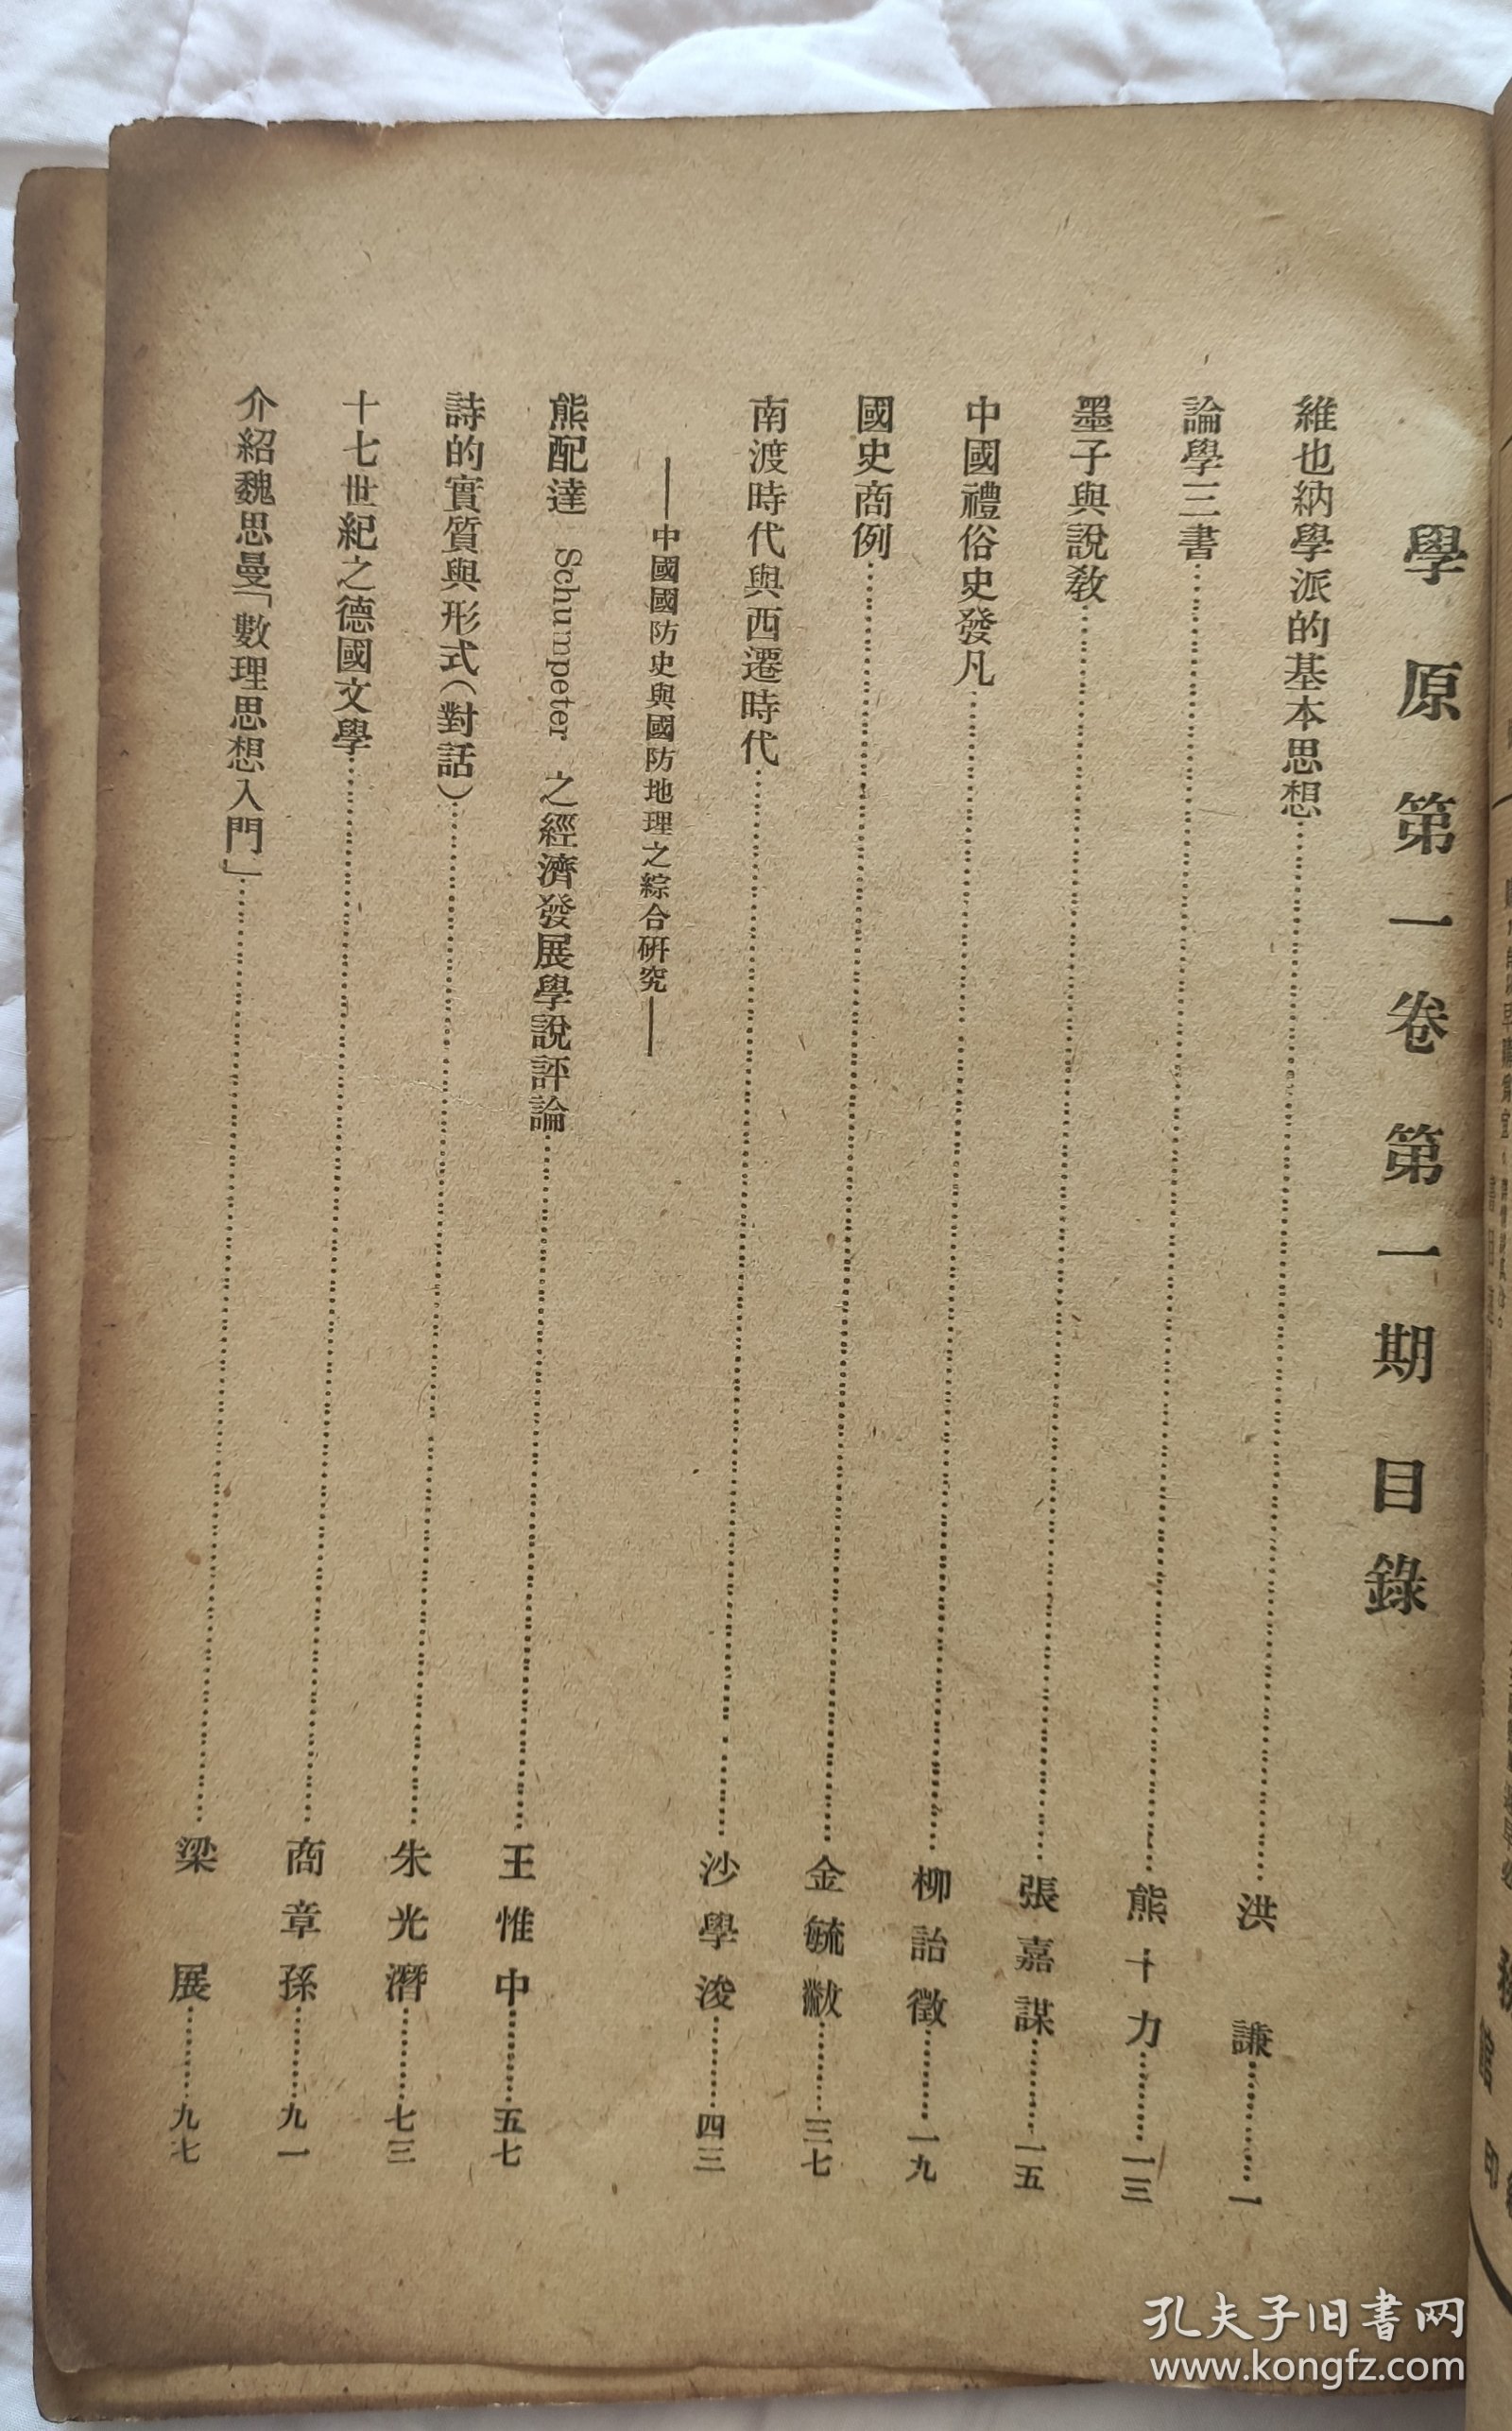 學原第一卷第一期目錄
維也納學派的基本思想……洪謙……一
論學三書……熊十力……一三
墨子與說教……張嘉謀……一五
中國禮俗史發凡……柳詒徵……一九
國史商例……金毓黻……三七
南渡時代與西遷時代……沙學浚……四三
——中國國防史與國防地理之綜合研究——
熊配達 Schumpeter 之經濟發展學說評論……王惟中……五七
詩的實質與形式（對話）……朱光潛……七三
十七世紀之德國文學……商章孫……九一
介紹魏思曼「數理思想入門」……梁展……九七
孔夫子旧書网
www.kongfz.com